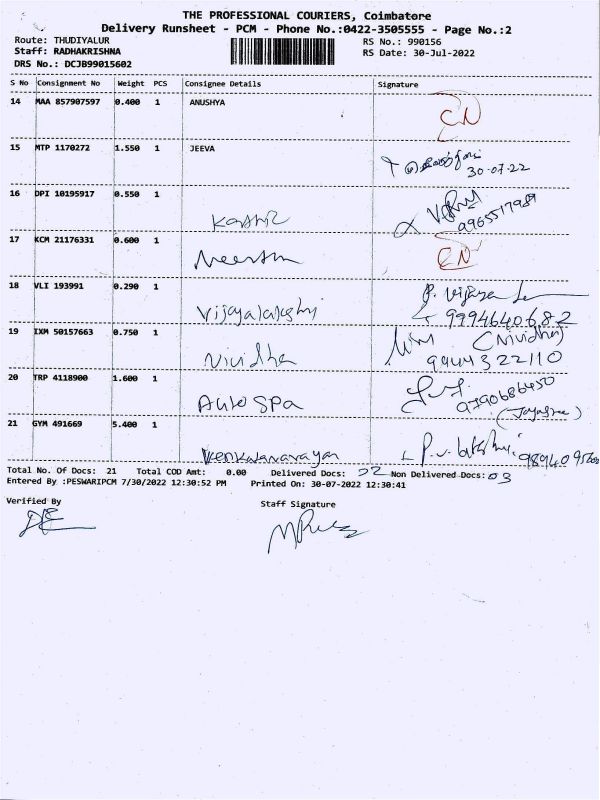 THE PROFESSIONAL COURIERS, Coimbatore
Delivery Runsheet - PCM - Phone No.:0422-3505555 - Page No.:2
Route: THUDIYALUR RS No.: 990156
Staff: RADHAKRISHNA RS Date: 30-Jul-2022
DRS No.: DCJB99015602
S No Consignment No Weight PCS Consignee Details Signature
14 MAA 857907597 0.400 1 ANUSHYA CN
15 MTP 1170272 1.550 1 JEEVA
30-07-22
16 DPI 10195917 0.550 1
9965517989
17 KCM 21176331 0.600 1 CN
18 VLI 193991 0.290 1 Vijayalakshmi P. Vijaya
9994640682
19 IXM 50157663 0.750 1 Nividha (Nividha)
9944322110
20 TRP 4118900 1.600 1 Auto SPA
9790686450
(Jayasree)
21 GYM 491669 5.400 1 Venkatanarayan P. V. Lakshmi
Total No. Of Docs: 21 Total COD Amt: 0.00 Delivered Docs: 22 Non Delivered Docs: 03
Entered By :PESWARIPCM 7/30/2022 12:30:52 PM Printed On: 30-07-2022 12:30:41
Verified By Staff Signature